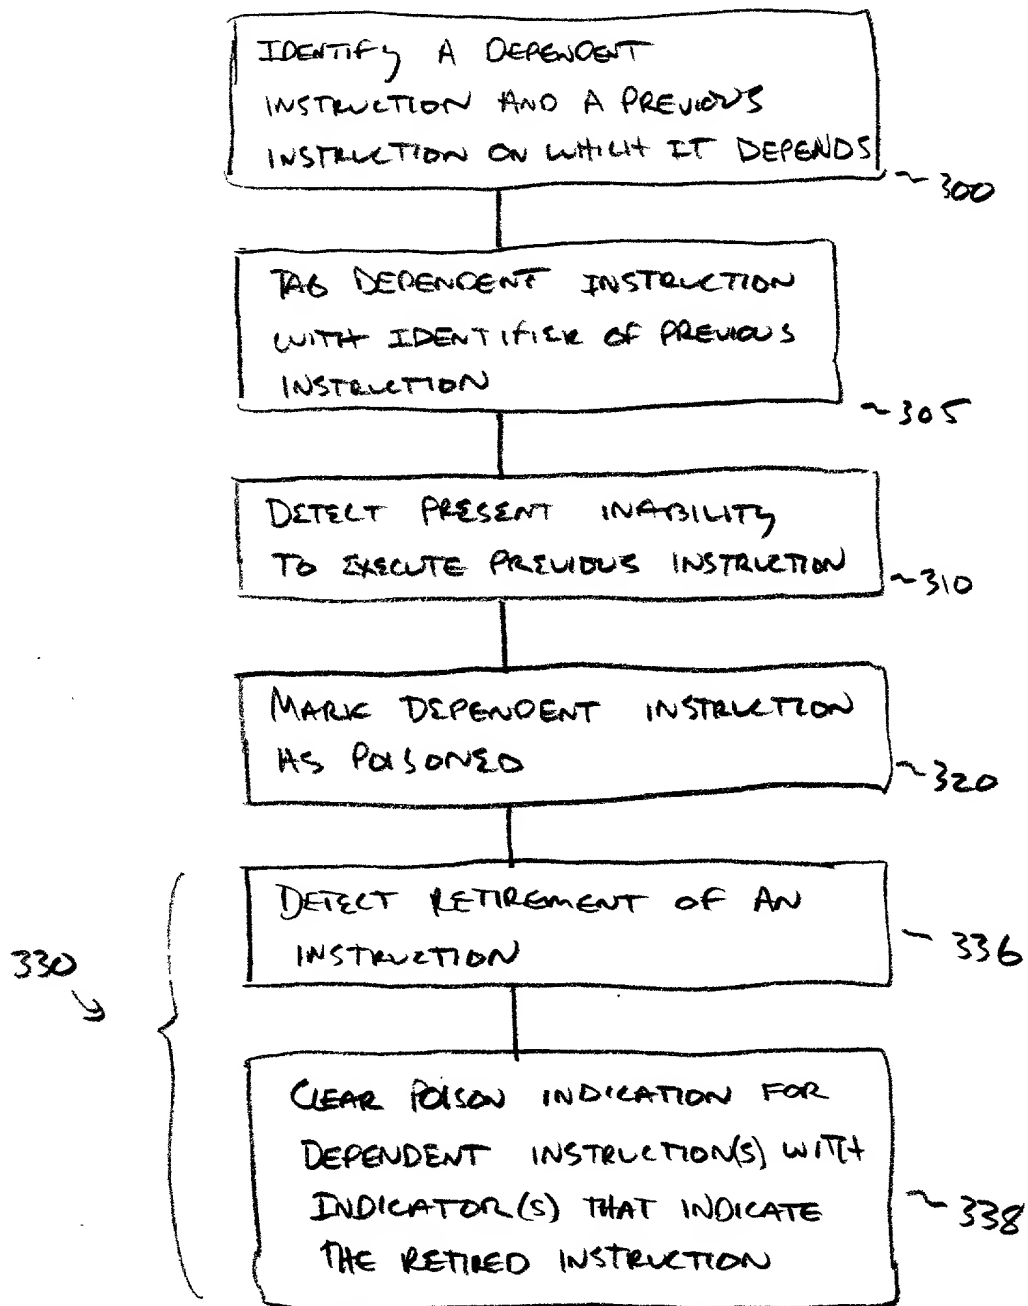 IDENTIFY A DEPENDENT
INSTRUCTION AND A PREVIOUS
INSTRUCTION ON WHICH IT DEPENDS
~300
TAG DEPENDENT INSTRUCTION
WITH IDENTIFIER OF PREVIOUS
INSTRUCTION
~305
DETECT PRESENT INABILITY
TO EXECUTE PREVIOUS INSTRUCTION
~310
MARK DEPENDENT INSTRUCTION
AS POISONED
~320
330
DETECT RETIREMENT OF AN
INSTRUCTION
~336
CLEAR POISON INDICATION FOR
DEPENDENT INSTRUCTION(S) WITH
INDICATOR(S) THAT INDICATE
THE RETIRED INSTRUCTION
~338